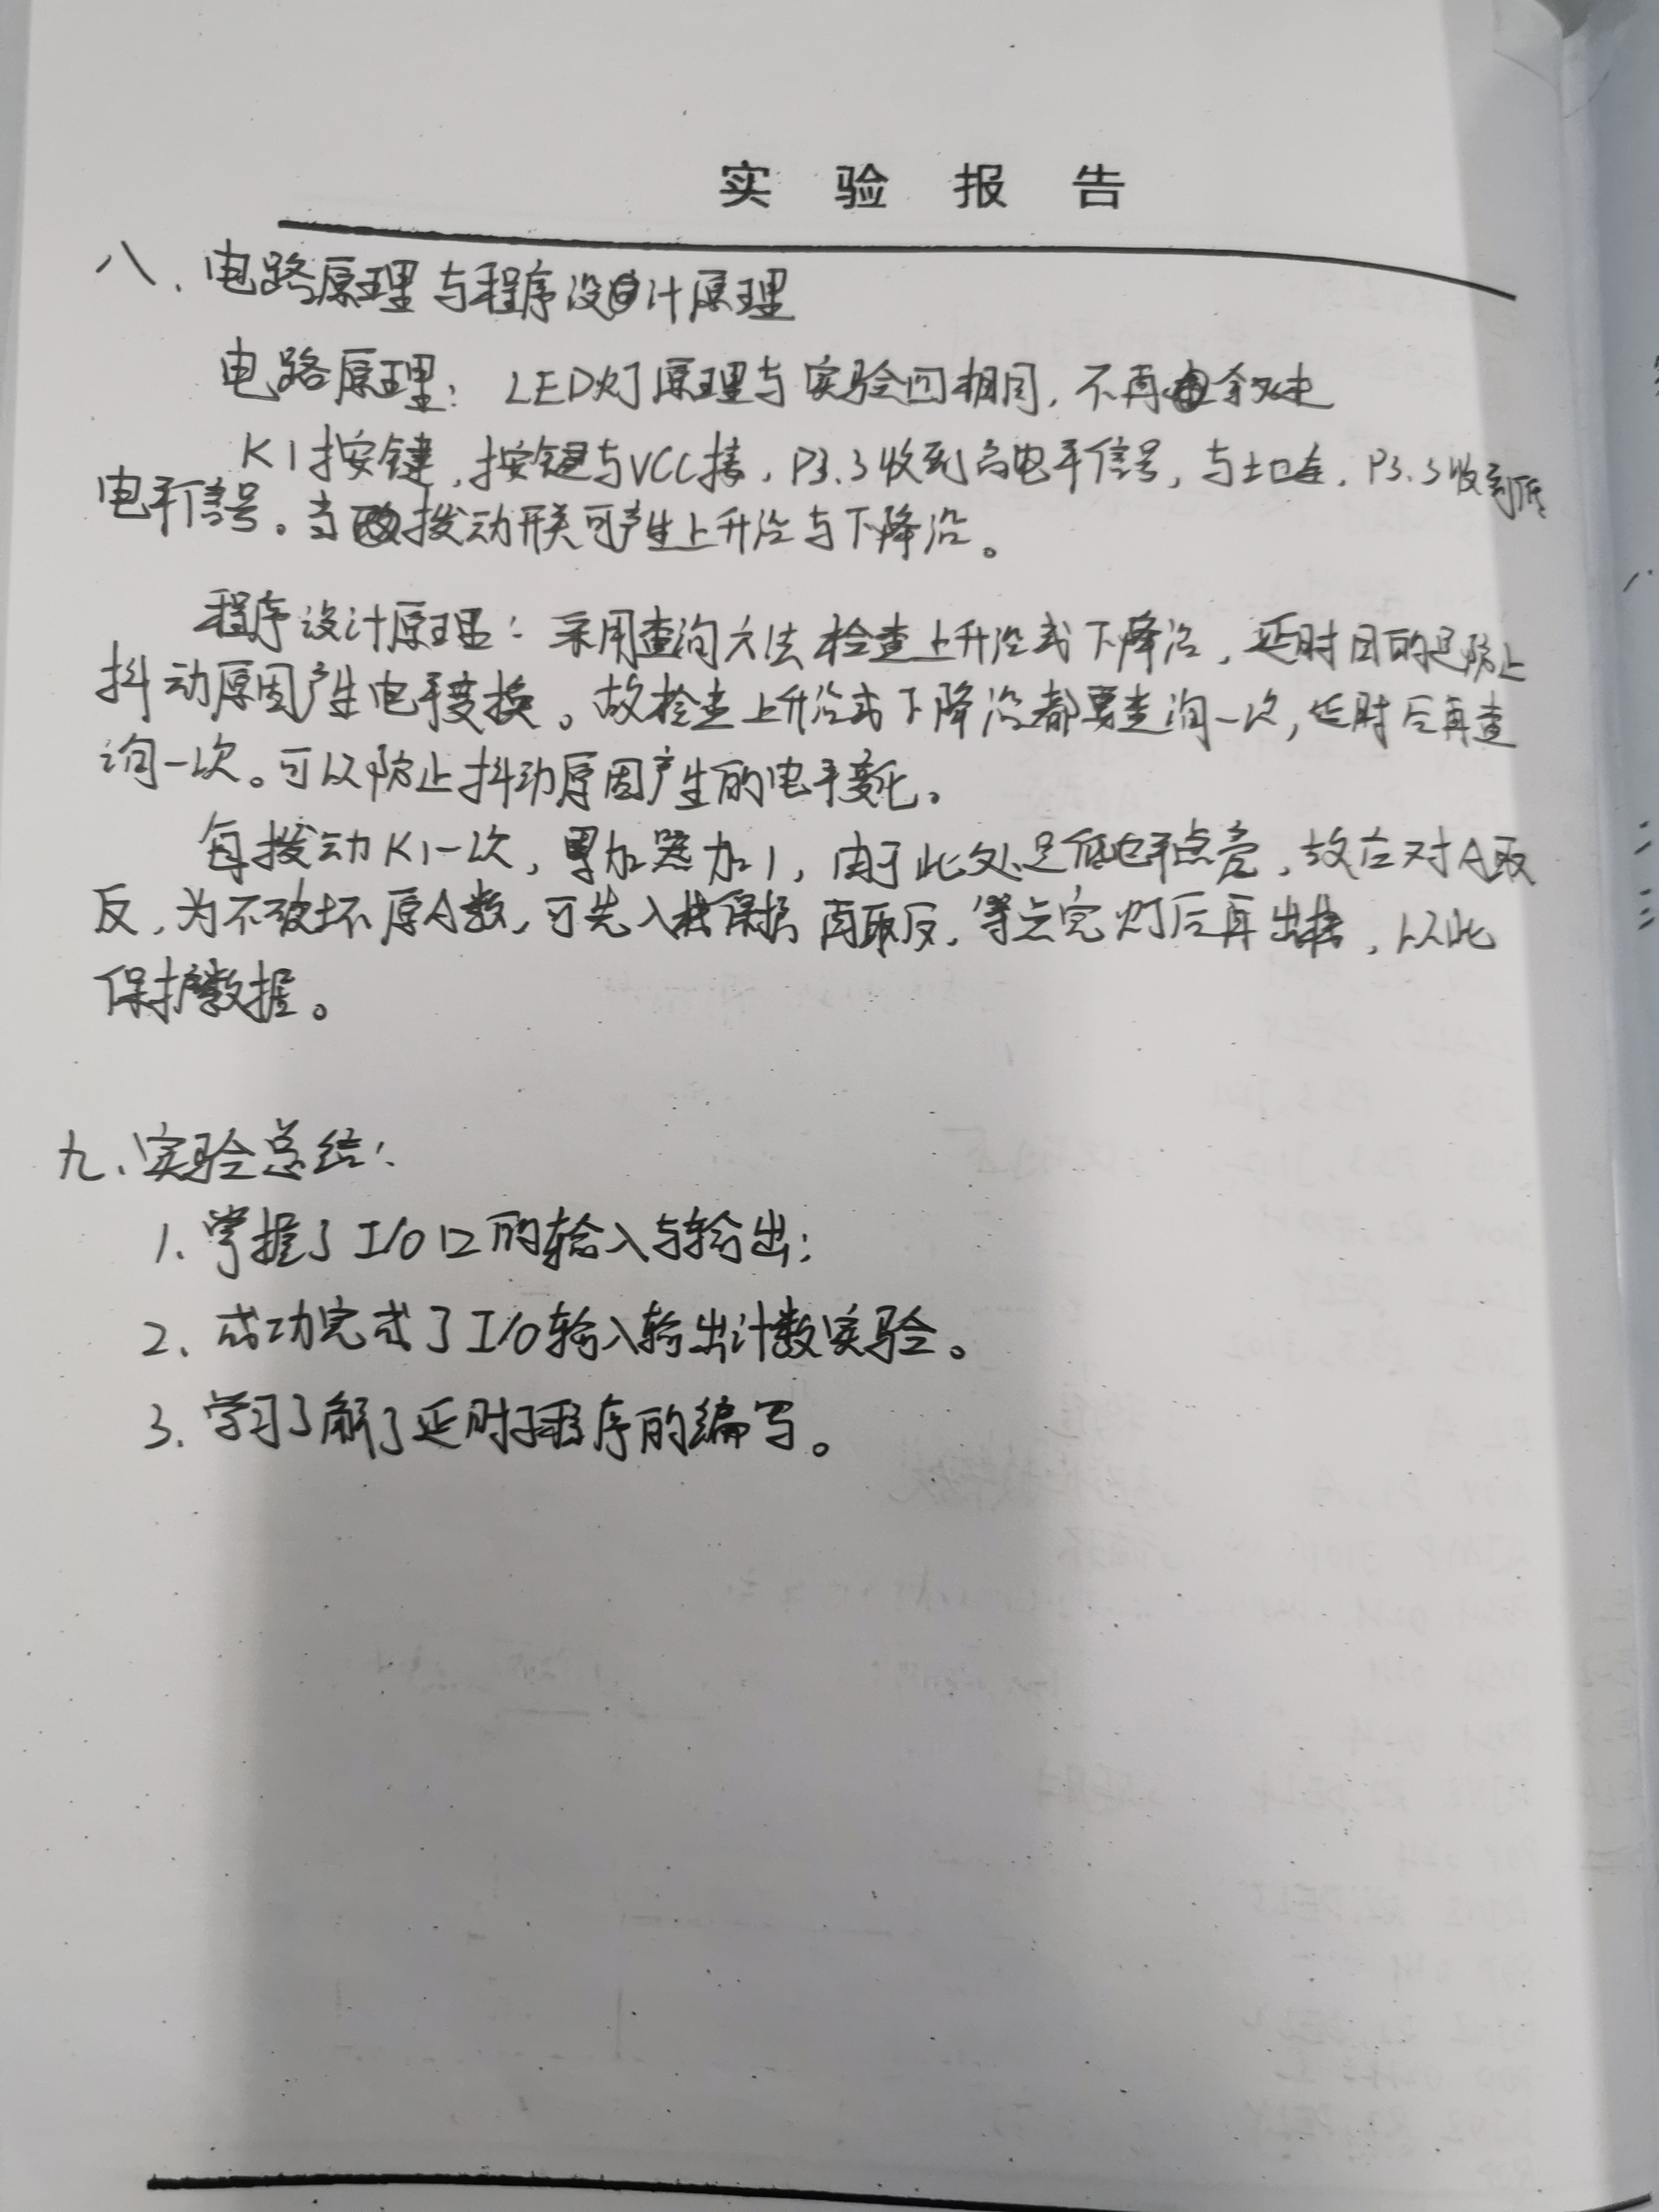 实验报告
八、电路原理与程序设计原理
电路原理：LED灯原理与实验四相同，不再叙述
K1按键，按键与VCC接，P3.3收到高电平信号，与地连，P3.3收到低
电平信号。当拨动开关可产生上升沿与下降沿。
程序设计原理：采用查询方法检查上升沿或下降沿，延时目的是防止
抖动原因产生电平变换。故检查上升沿或下降沿都要查询一次，延时后再查
询一次。可以防止抖动原因产生的电平变化。
每拨动K1一次，累加器加1，由于此处是低电平点亮，故应对A取
反，为不破坏原A数，可先入栈保护再取反，等点完灯后再出栈，以此
保护数据。
九、实验总结：
1. 掌握了I/O口的输入与输出；
2. 成功完成了I/O输入输出计数实验。
3. 学习了解了延时子程序的编写。